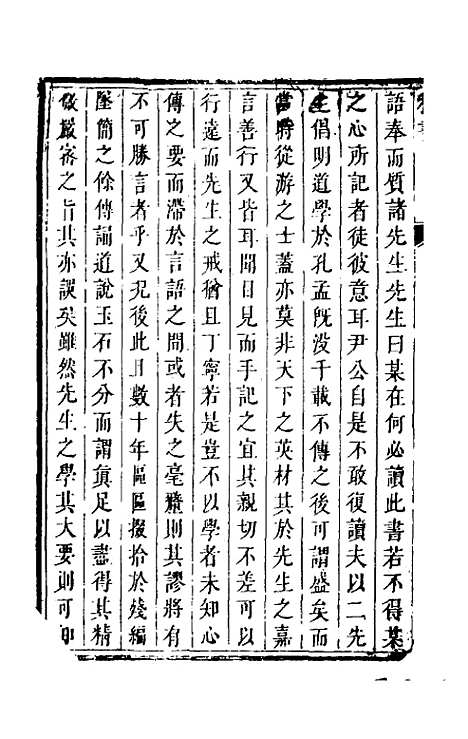 語奉而質諸先生先生曰某在何必讀此書若不得某
之心所記者徒彼意耳尹公自是不敢復讀夫以二先
生倡明道學於孔孟旣没千載不傳之後可謂盛矣而
當時從游之士蓋亦莫非天下之英材其於先生之嘉
言善行又皆耳聞目見而手記之宜其親切不差可以
行遠而先生之戒猶且丁寧若是豈不以學者未知心
傳之要而滯於言語之間或者失之毫釐則其謬將有
不可勝言者乎又况後此且數十年區區掇拾於殘編
墜簡之餘傳誦道說玉石不分而謂眞足以盡得其精
微嚴審之旨其亦誤矣雖然先生之學其大要則可